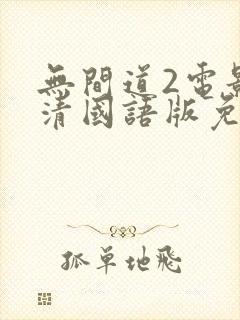 無間道2電影
清國語版免
孤單地飛